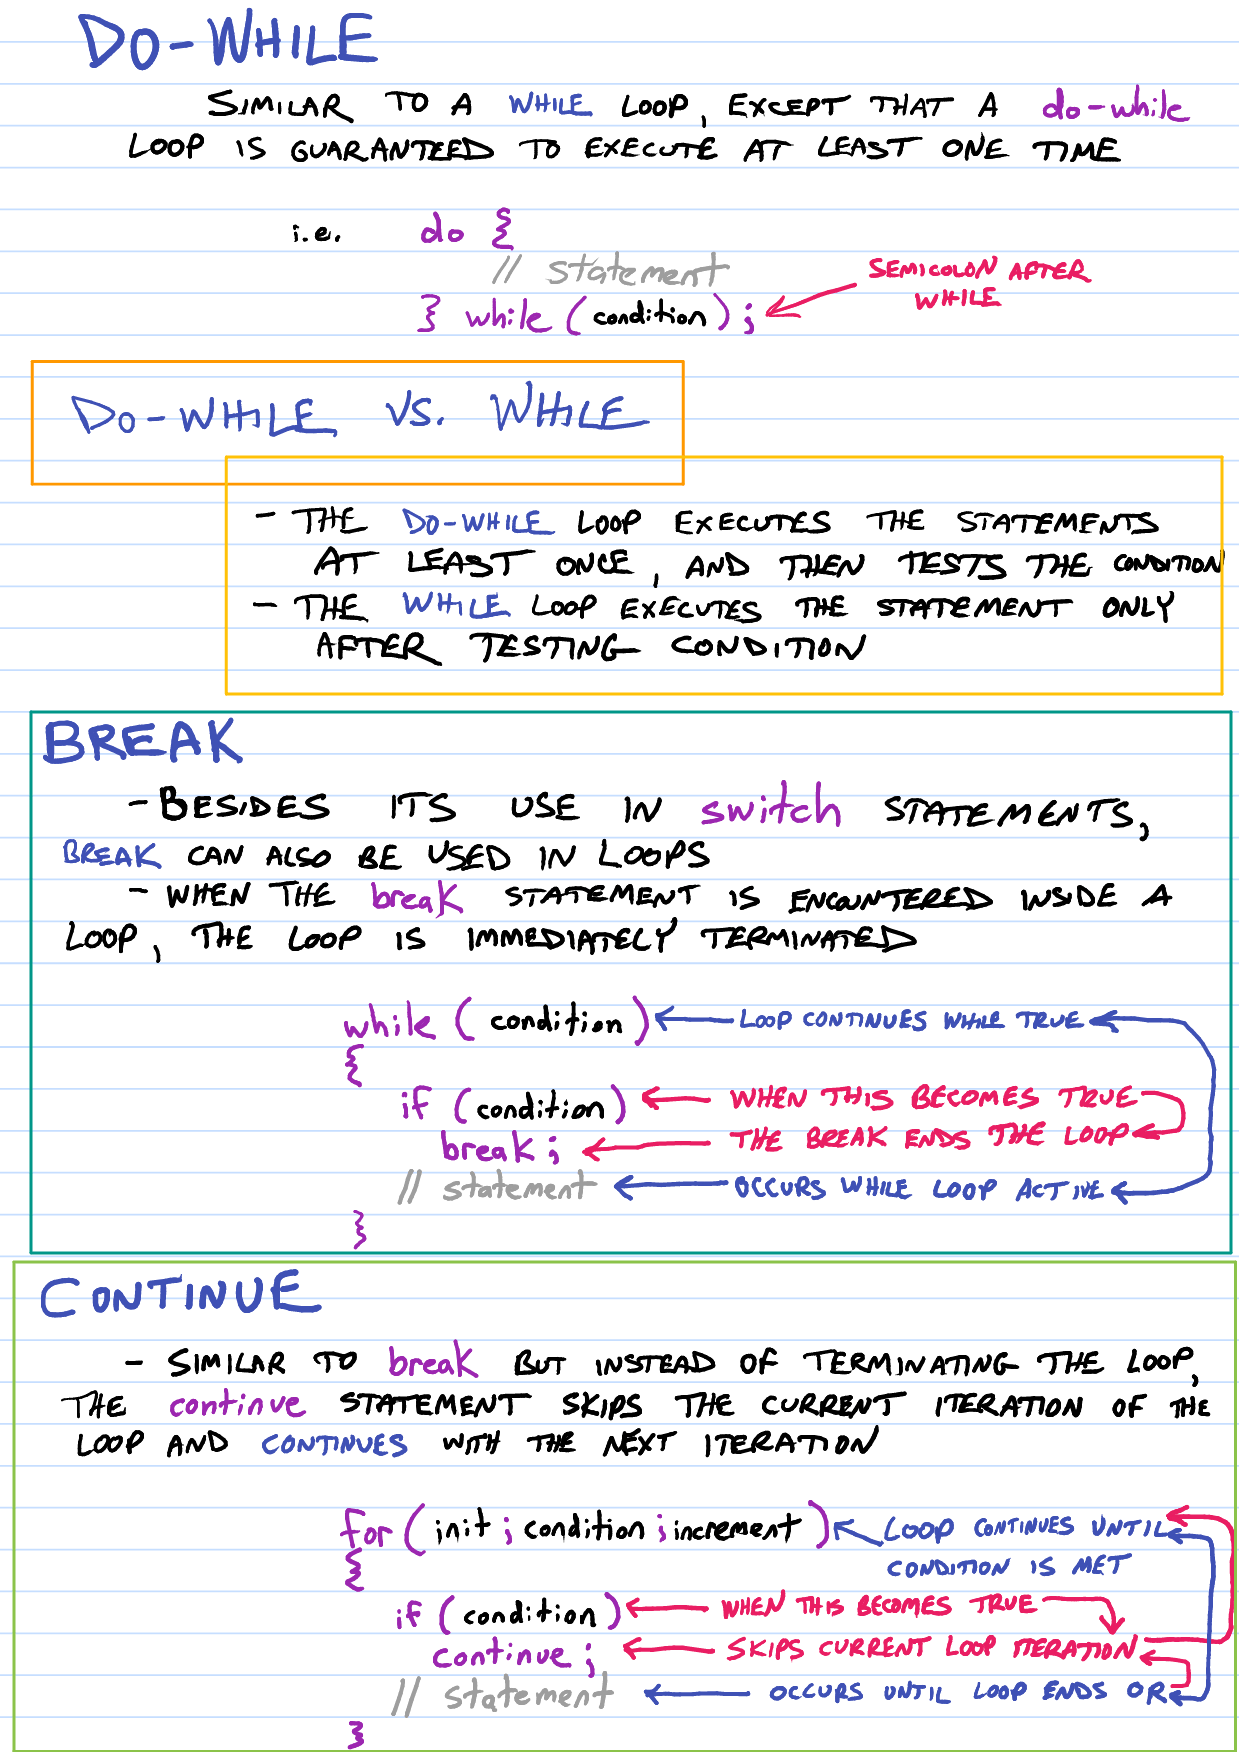 DO-WHILE
SIMILAR TO A WHILE LOOP, EXCEPT THAT A do-while
LOOP IS GUARANTEED TO EXECUTE AT LEAST ONE TIME
i.e. do {
// statement
SEMICOLON AFTER
WHILE
} while (condition);
DO-WHILE VS. WHILE
- THE DO-WHILE LOOP EXECUTES THE STATEMENTS
AT LEAST ONCE, AND THEN TESTS THE CONDITION
- THE WHILE LOOP EXECUTES THE STATEMENT ONLY
AFTER TESTING CONDITION
BREAK
- BESIDES ITS USE IN switch STATEMENTS,
BREAK CAN ALSO BE USED IN LOOPS
- WHEN THE break STATEMENT IS ENCOUNTERED INSIDE A
LOOP, THE LOOP IS IMMEDIATELY TERMINATED
while (condition) LOOP CONTINUES WHILE TRUE
{
if (condition) WHEN THIS BECOMES TRUE
break; THE BREAK ENDS THE LOOP
// statement OCCURS WHILE LOOP ACTIVE
}
CONTINUE
- SIMILAR TO break BUT INSTEAD OF TERMINATING THE LOOP,
THE continue STATEMENT SKIPS THE CURRENT ITERATION OF THE
LOOP AND CONTINUES WITH THE NEXT ITERATION
for (init; condition; increment) LOOP CONTINUES UNTIL
{ CONDITION IS MET
if (condition) WHEN THIS BECOMES TRUE
continue; SKIPS CURRENT LOOP ITERATION
// statement OCCURS UNTIL LOOP ENDS OR
}